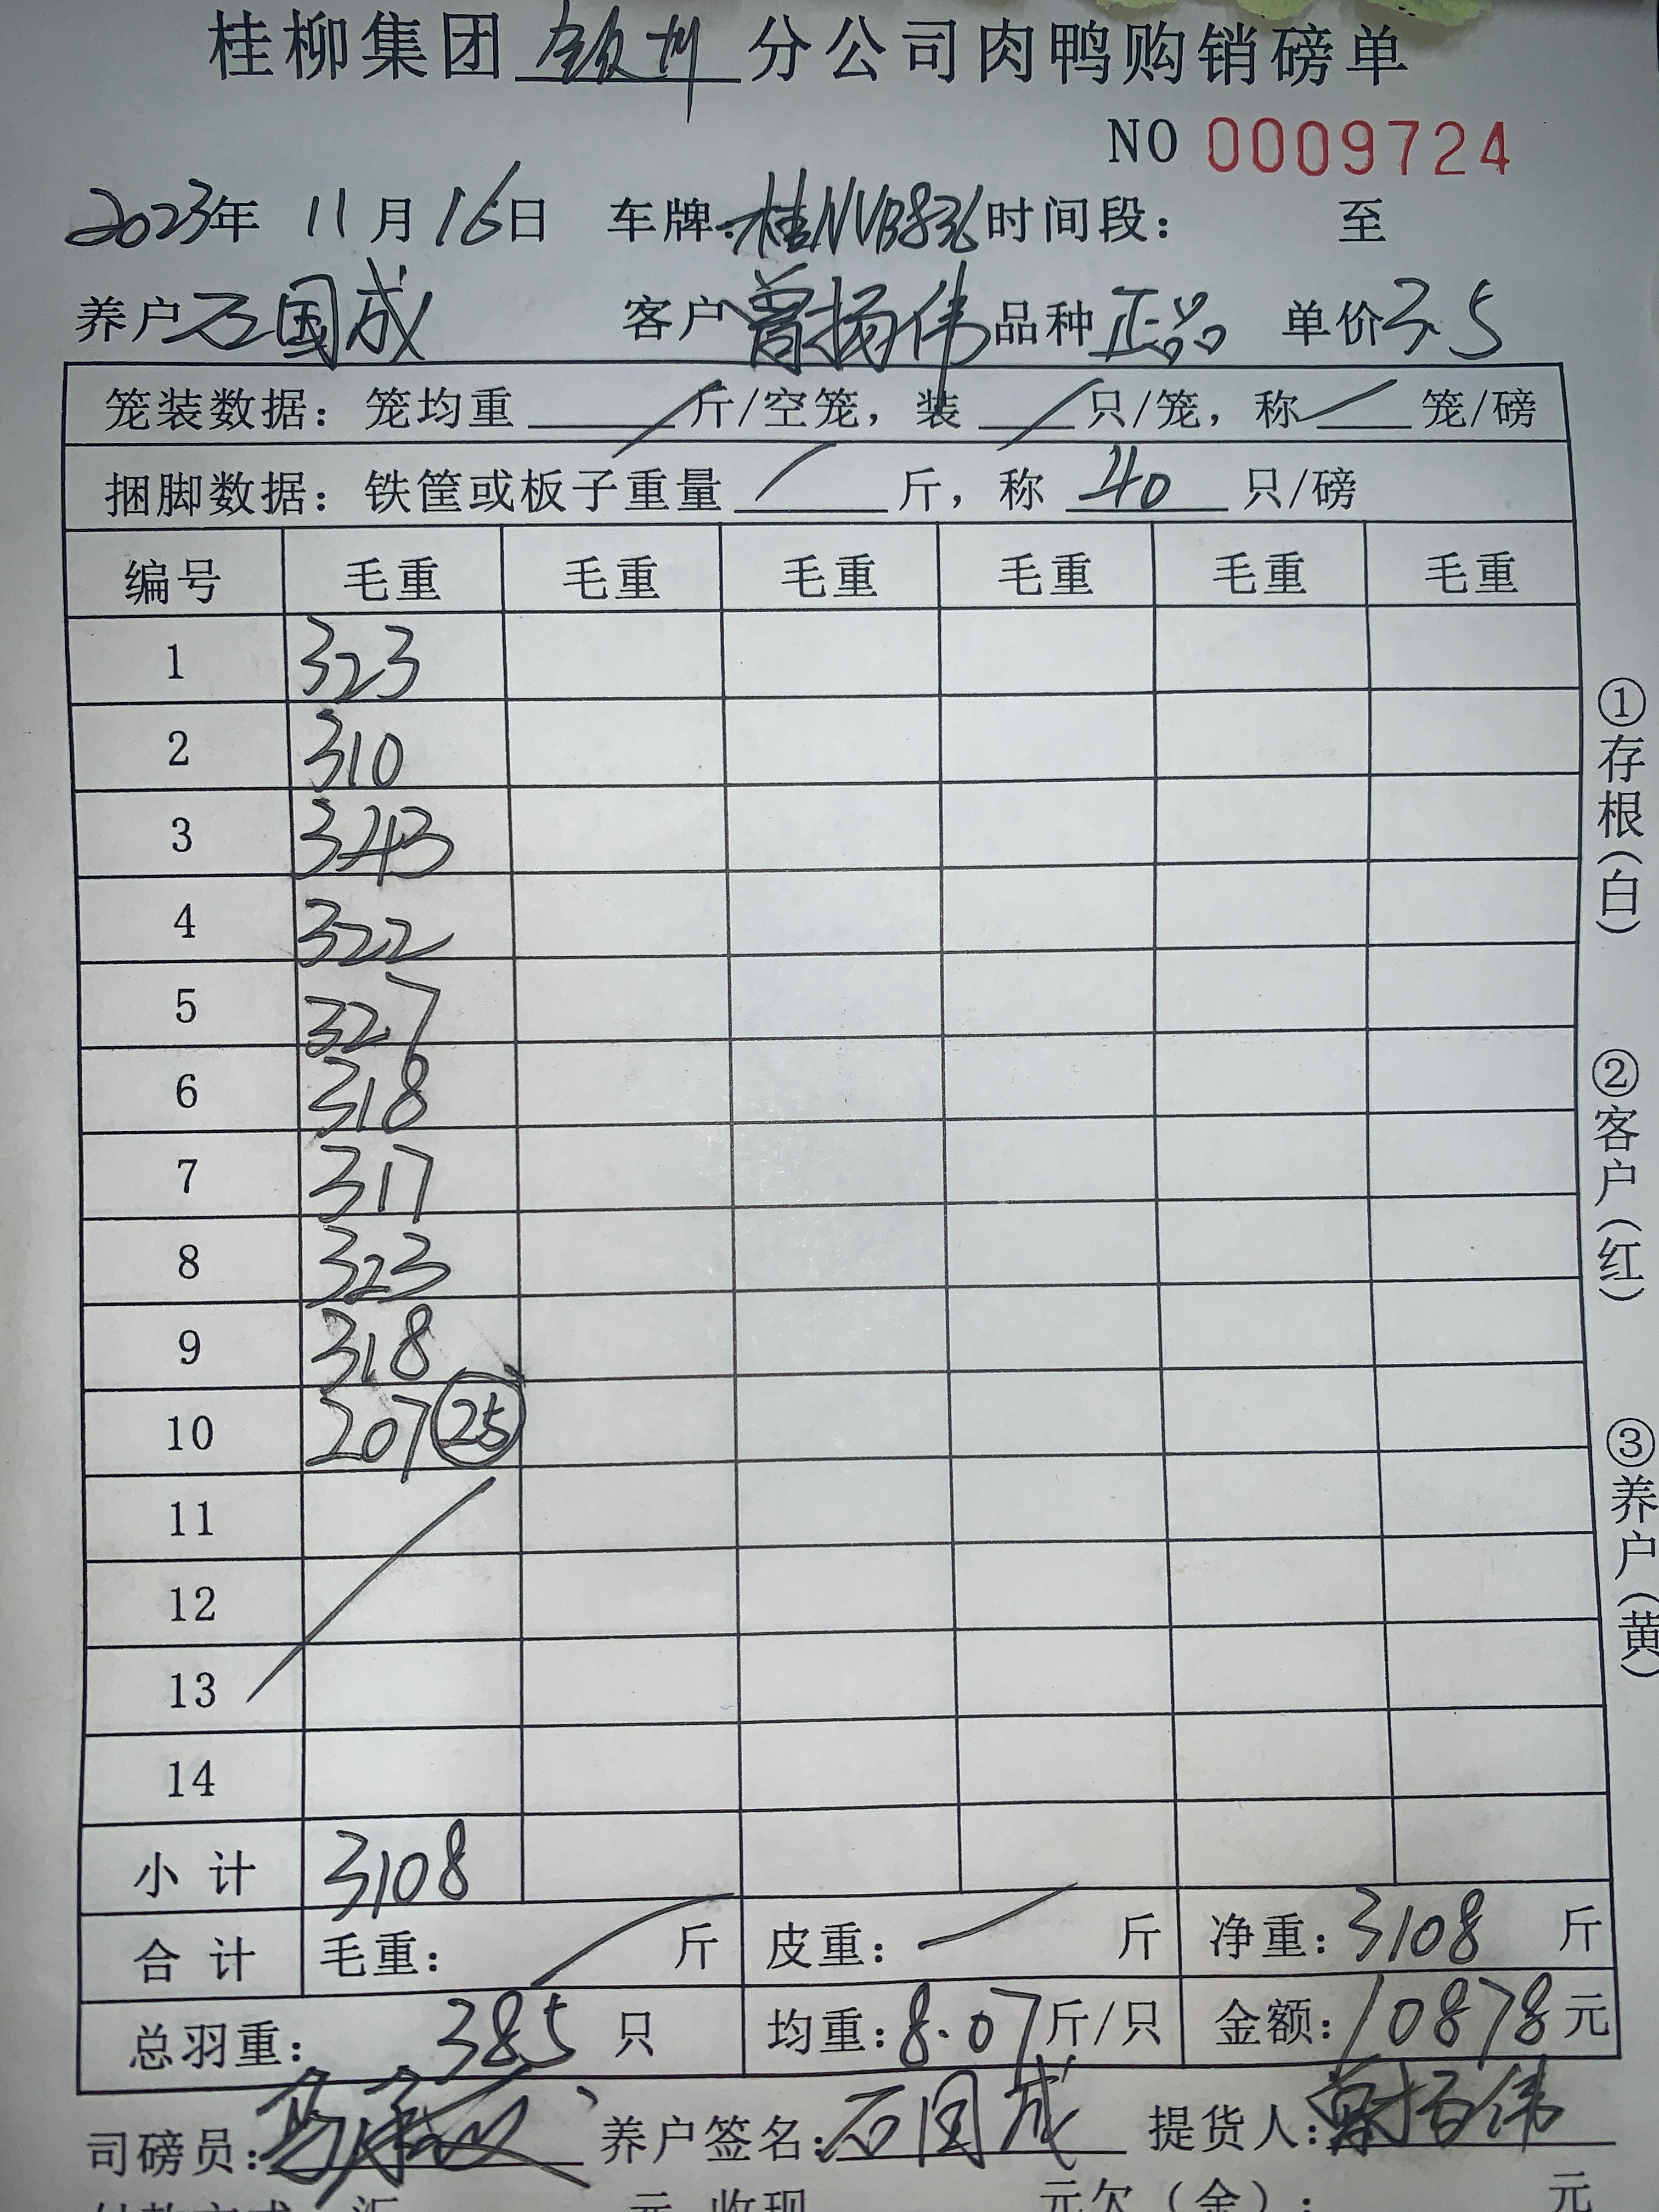 桂柳集团 钦州 分公司肉鸭购销磅单
NO 0009724
2023年 11月16日 车牌:桂NVB836 时间段: 至
养户 石国成 客户 曾扬伟 品种 正品 单价 3.5
笼装数据:笼均重 / 斤/空笼,装 / 只/笼,称 / 笼/磅
捆脚数据:铁筐或板子重量 / 斤,称 40 只/磅
编号 毛重 毛重 毛重 毛重 毛重 毛重
1 323
2 310
3 343
4 322
5 327
6 318
7 317
8 323
9 318
10 207 25
11
12
13
14
小计 3108
合计 毛重: / 斤 皮重: / 斤 净重:3108 斤
总羽重: 385 只 均重:8.07斤/只 金额:10878元
司磅员: 养户签名:石国成 提货人:曾扬伟
元 收现 元欠(金): 元
①存根(白)
②客户(红)
③养户(黄)